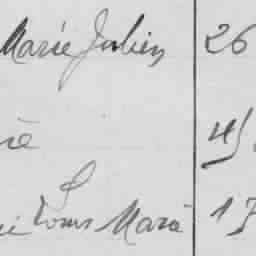 Marie Julien 26
ie 45
ie Louis Marie 17